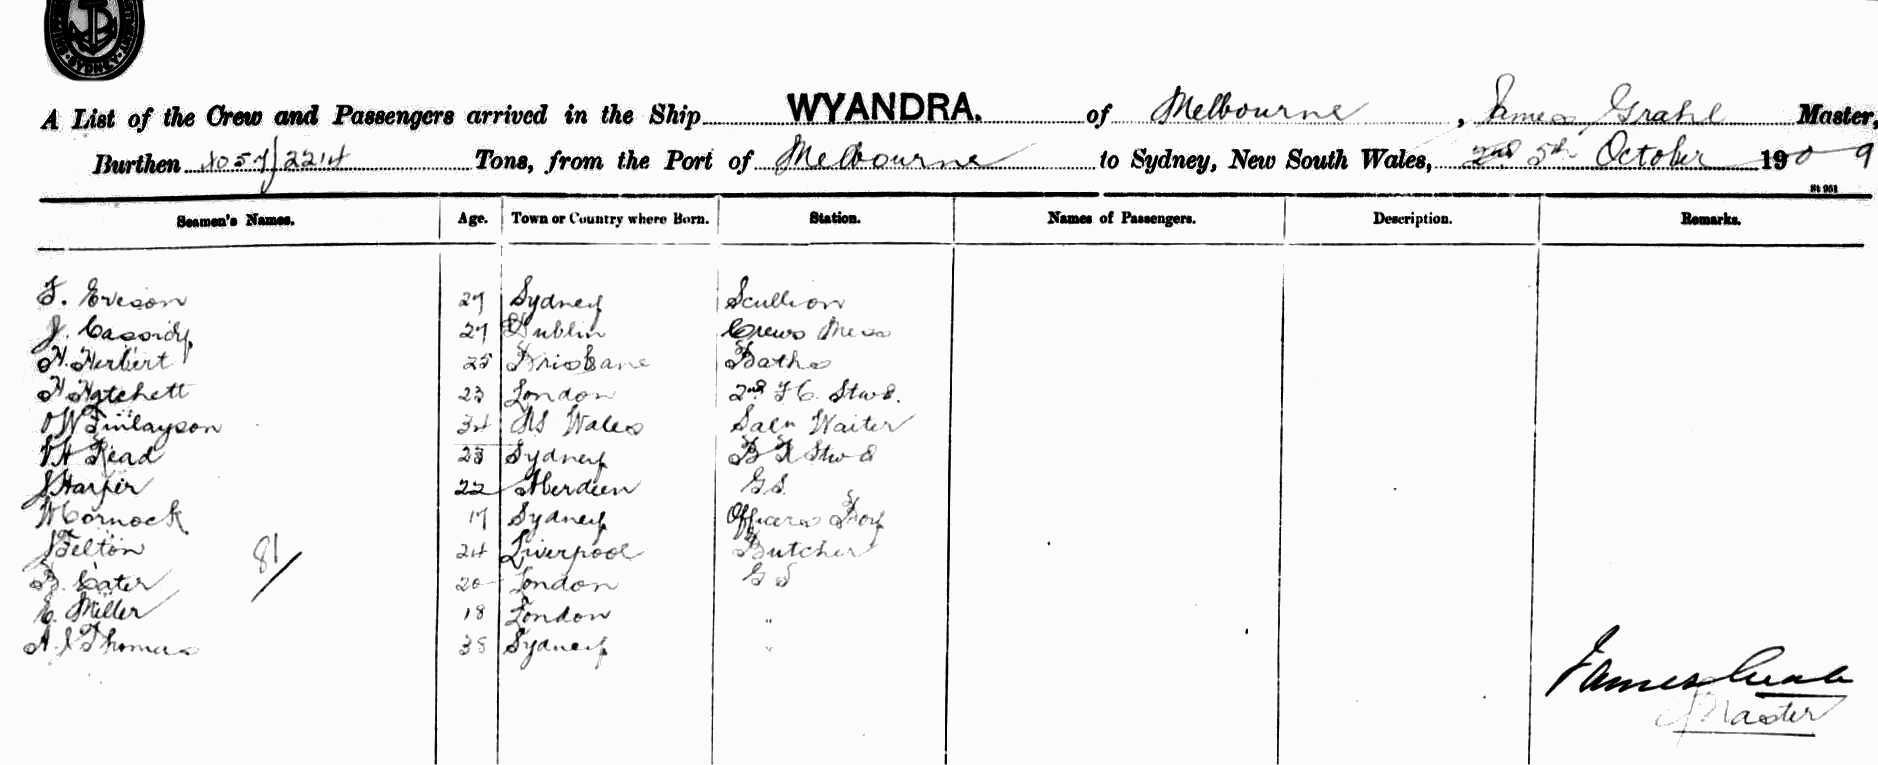 SYDNEY
A List of the Crew and Passengers arrived in the Ship WYANDRA. of Melbourne, James Grahl Master,
Burthen 4057/2214 Tons, from the Port of Melbourne to Sydney, New South Wales, 2nd 5th October 1909
St 951
Seamen's Names. Age. Town or Country where Born. Station. Names of Passengers. Description. Remarks.
F. Eveson 27 Sydney Scullion
J. Cassidy 27 Dublin Crews Mess
H. Herbert 25 Brisbane Baths
H Hatchett 23 London 2nd F C. Stwd.
W Finlayson 34 NS Wales Saln Waiter
Read 23 Sydney B R Stwd
J Harper 22 Aberdeen G S.
W Cornock 17 Sydney Officers Boy
J Felton 24 Liverpool Butcher
B. Cater 20 London G S
E. Miller 18 London "
A. J Thomas 35 Sydney "
81/
James Grahl
Master